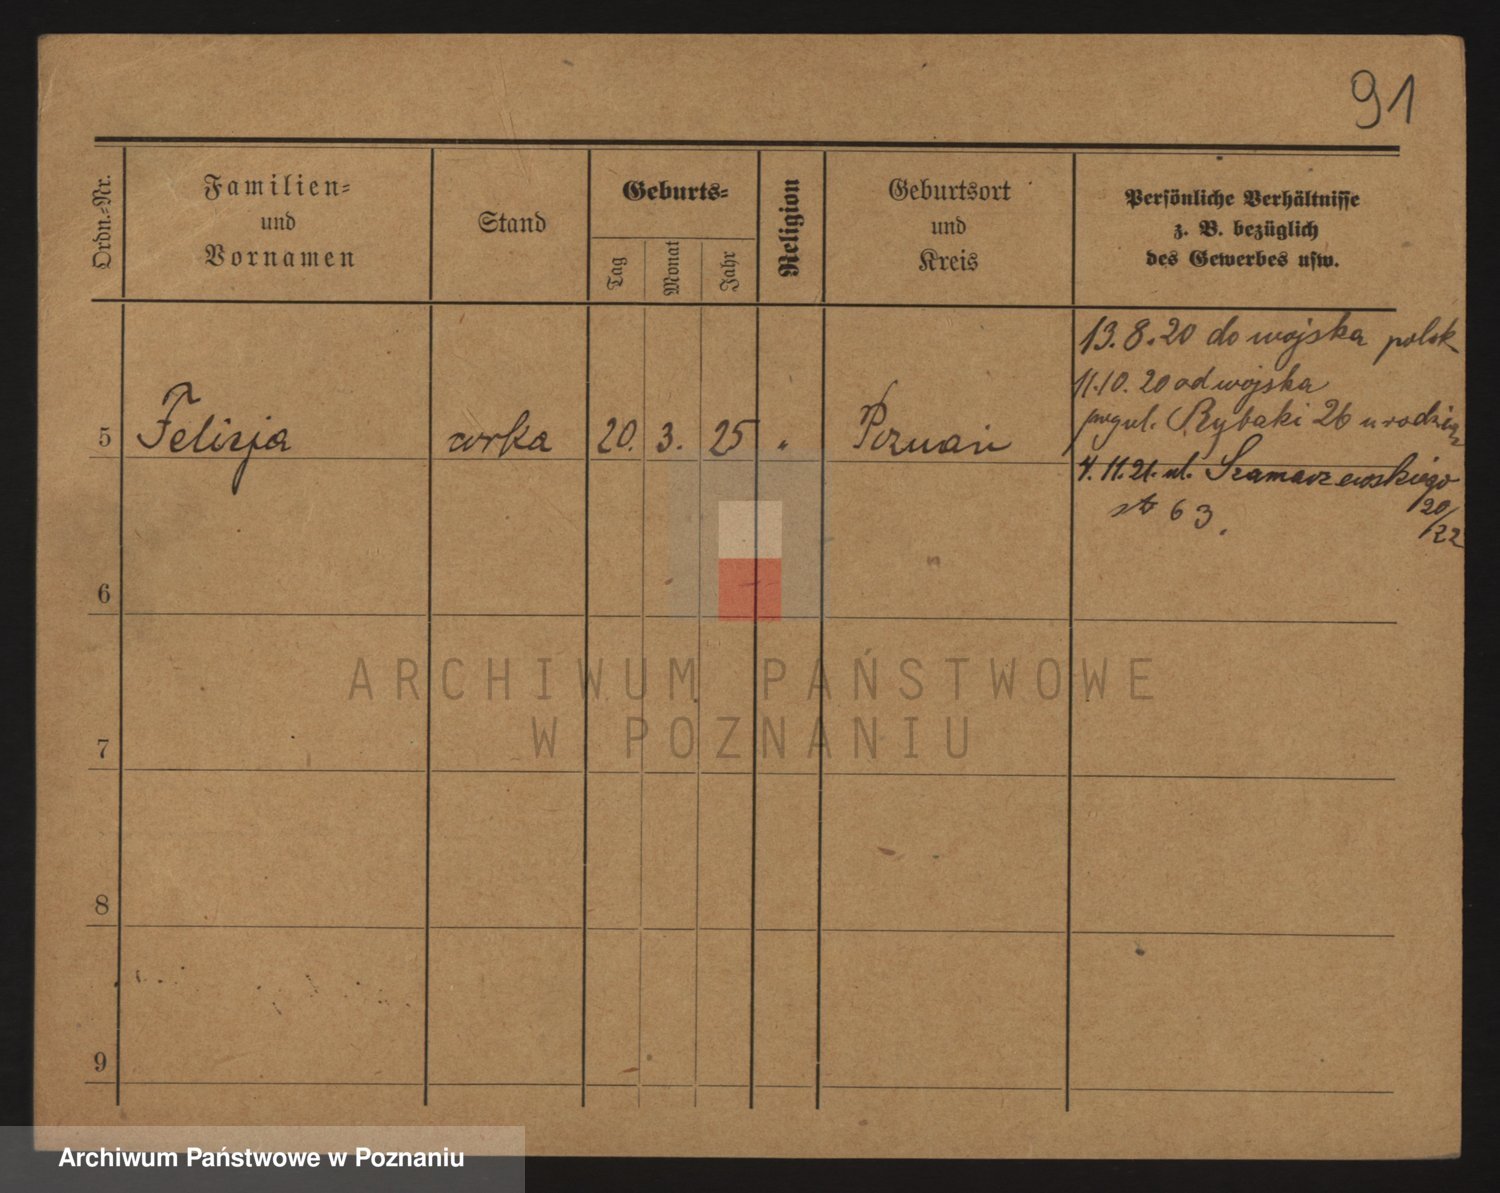 91
Ordn.-Nr.
Familien-
und
Vornamen
Stand
Geburts-
Tag
Monat
Jahr
Religion
Geburtsort
und
Kreis
Persönliche Verhältnisse
z. B. bezüglich
des Gewerbes usw.
13.8.20 do wojska polsk
11.10.20 od wojska
ul. Rybaki 26 u rodzic
5 Felicja corka 20. 3. 25 " Poznań
4.11.21. ul. Szamarzewskiego
63. 20/22
6
7
8
9
ARCHIWUM PAŃSTWOWE
W POZNANIU
Archiwum Państwowe w Poznaniu